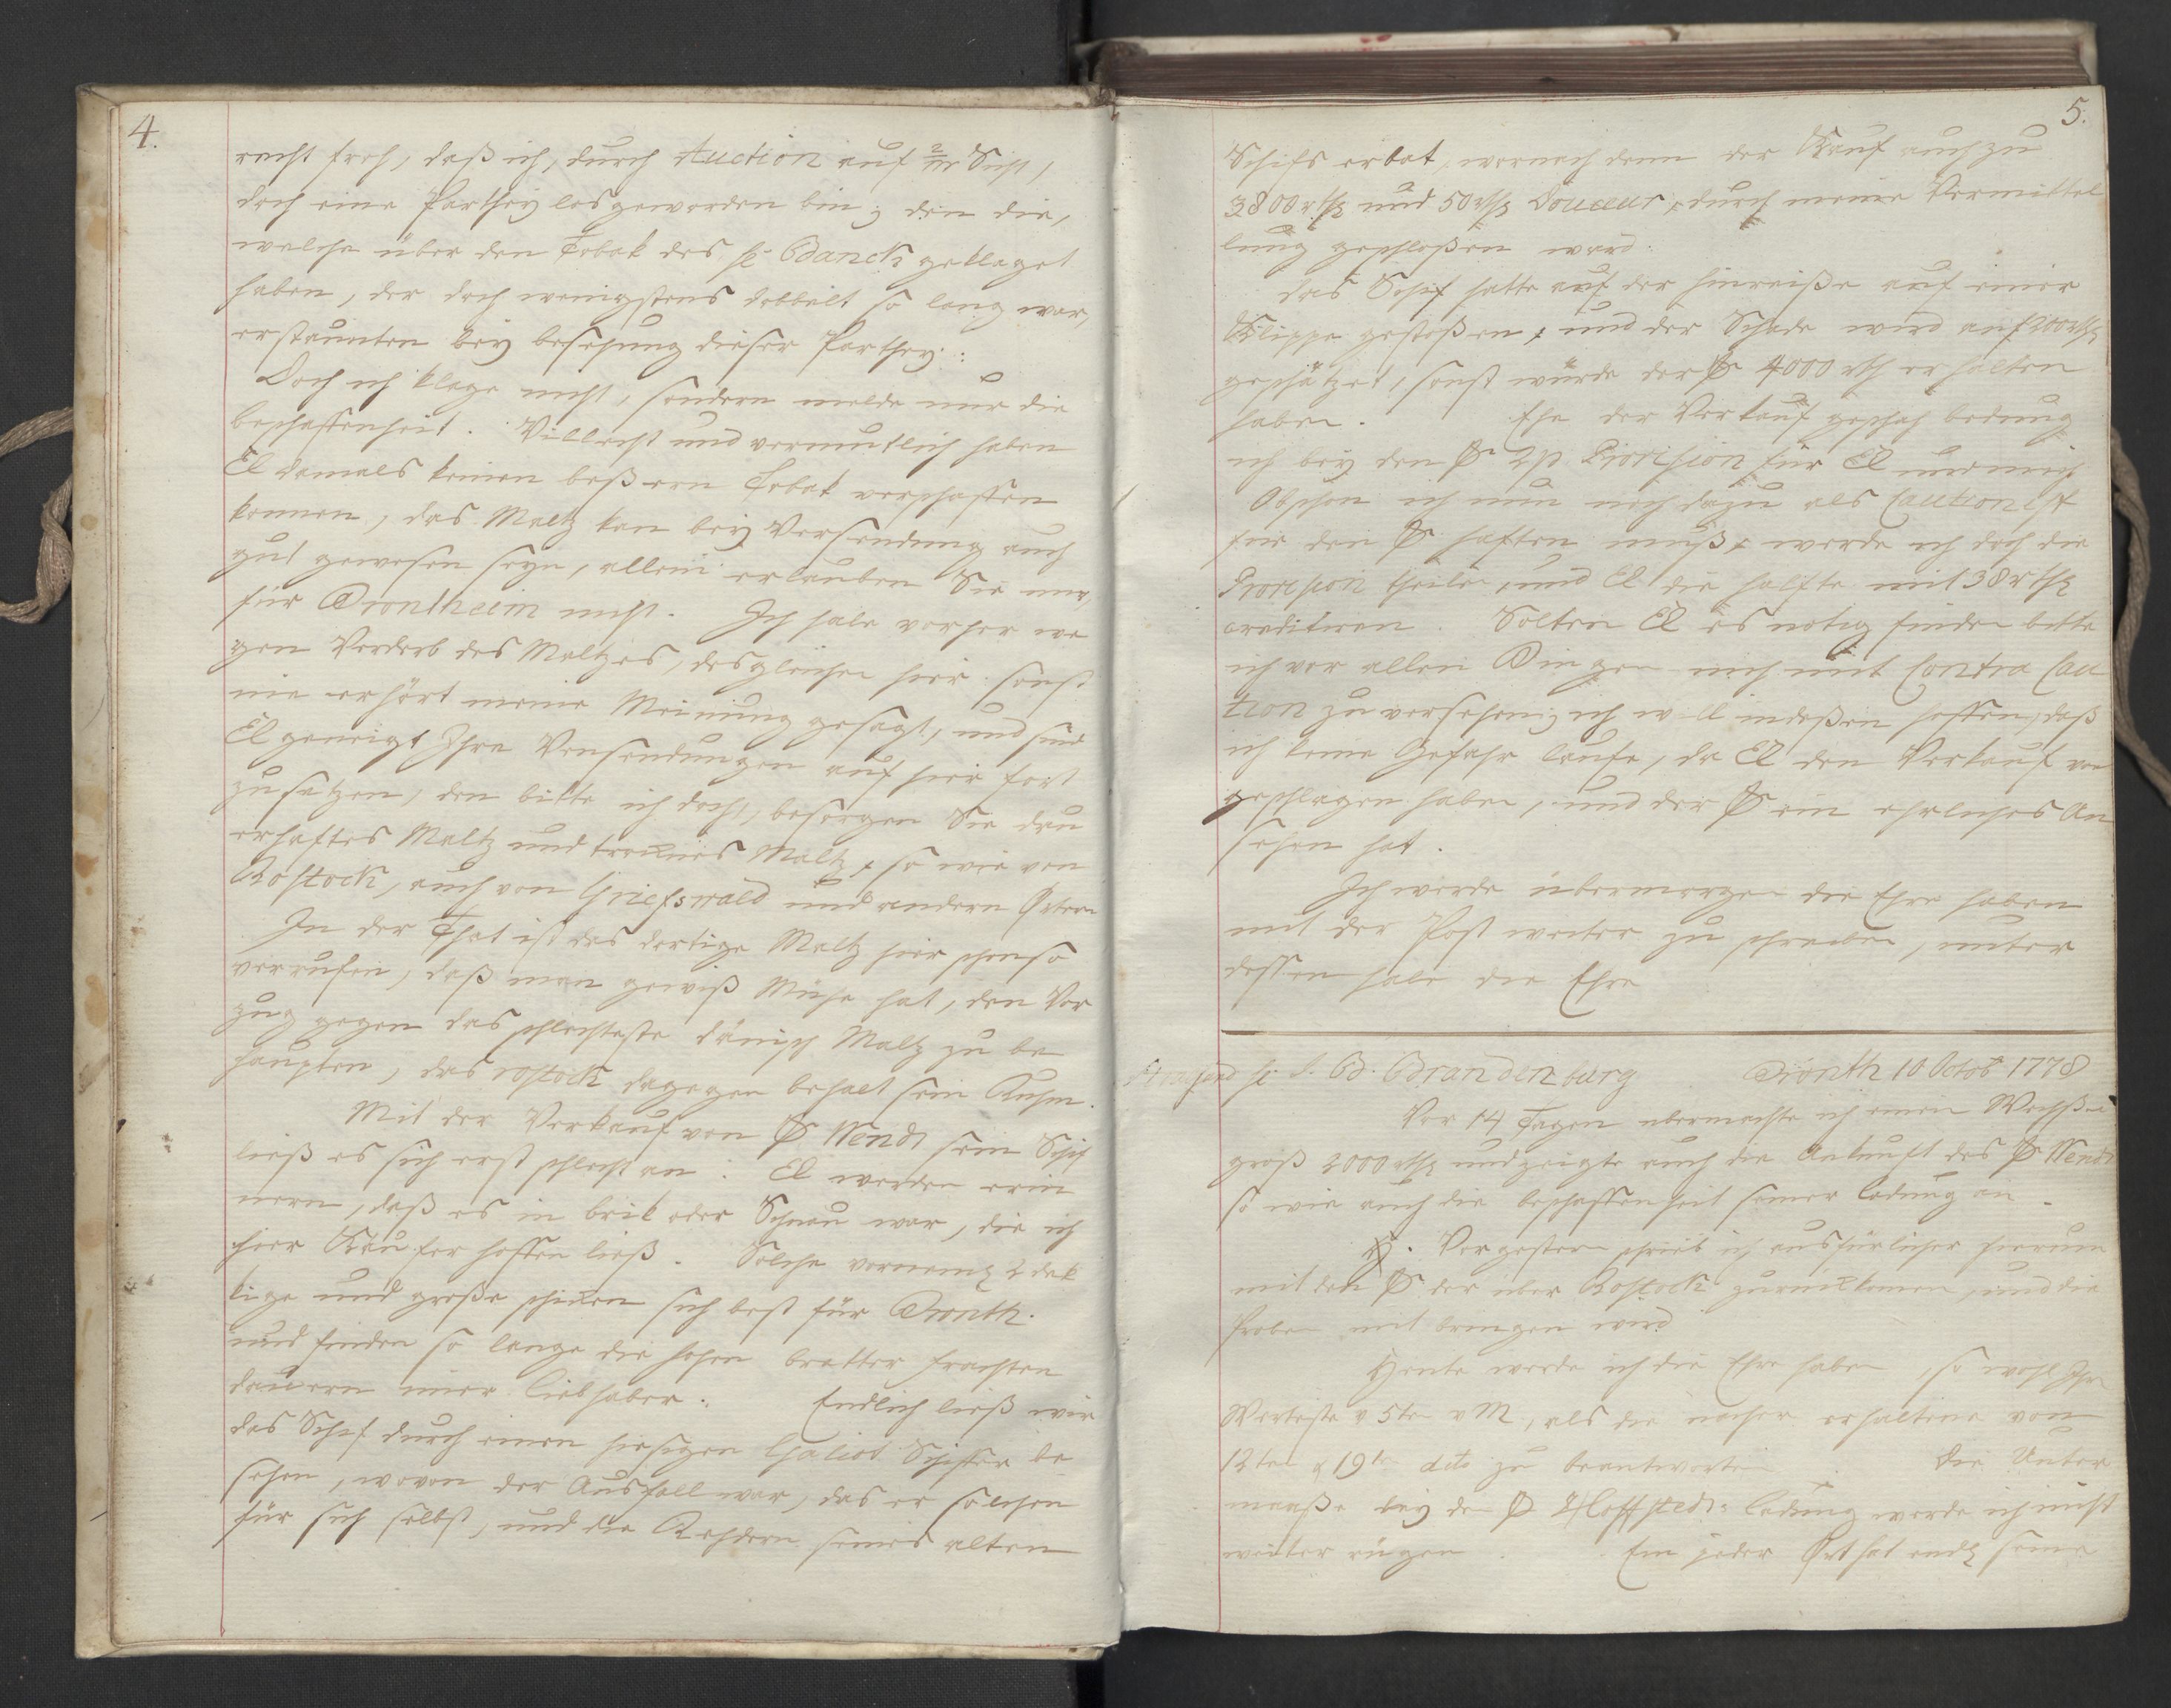 4.
recht froh, daß ich, durch Auction auf 2/m Sicht,
doch eine Parthey losgeworden bin; den die,
welche über den Tobak des Hr Banck geklaget
haben, der doch wenigstens dobbelt so lang war,
erstaunten bey besehung dieser Parthey:
Doch ich klage nicht, sondern melde nur die
beschaffenheit. Villeicht und vermutlich haben
El damals keinen beßern Tobak verschaffen
konnen, das Maltz kan bey Versendung auch
gut gewesen seyn, allein erlauben Sie nur,
für Drontheim nicht. Ich habe vorher we
gen Verderb des Maltzes, desgleichen hier sonst
nie erhört meine Meinung gesagt, und sind
El geneigt Ihre Versendungen auf hier fort
zu setzen, den bitte ich doch, besorgen Sie dau
erhaftes Maltz und trocknes Maltz, so wie von
Rostock, auch von Griefswald und andern Orten
In der That ist das dortige Maltz hier schon so
verrufen, daß man gewiß Mühe hat, den Vor
zug gegen das schlechteste dänisch Maltz zu be
haupten, das rostock dagegen behalt sein Ruhm.
Mit der Verkauf von Wendt sein Schif
ließ es sich erst schlecht an. El werden erin
nern, daß es in brik oder Schnau war, die ich
hier Käufer hoffen ließ. Solche 2 dek
kige und große schicken sich best für Dronth.
und finden so lange die hohen bretter frachten
dauern imer liebhaber. Endlich ließ wir
das Schif durch einen hiesigen Galiot Schiffer be
sehen, wovon der Ausfall war, das er solchen
für sich selbst, und die Rehdern seines alten
5.
Schifs erbot, wornach denn der Kauf auch zu
3800 rthl und 50 rthl Douceur, durch meine Vermittel
lung geschloßen ward.
Das Schif hatte auf der hinreiße auf einer
Klippe gestoßen, und der Schade wird auf 200 rthl
geschätzet, sonst würde der 4000 rth erhalten
haben. Ehe der Verkauf geschah bedung
ich bey den 2 p Provision für El und mich
Obschon ich nun noch dazu als Cautionist
für den haften muß, werde ich doch die
Provision theilen, und El die halfte mit 38 rthl
creditiren. Solten El es notig finden bitte
ich vor allen Dingen mich mit Contra Cau
tion zu versehen; ich will indeßen hoffen, daß
ich keine Gefahr laufe, da El den Verkauf vor
geschlagen haben, und der ein ehrliches An
sehen hat.
Ich werde übermorgen die Ehre haben
mit der Post weiter zu schreiben, unter
dessen habe die Ehre
Hr J. B. Brandenburg Dronth 10 Octob 1778
Vor 14 Tagen übermachte ich einen Wechßel
groß 2000 rthl und zeigte auch die Ankunft des Wendt
so wie auch die beschaffenheit seiner ladung an.
Vorgestern schrieb ich ausfürlicher hierum
mit den der über Rostock zurückkomen, und die
Proben mit bringen wird
Heute werde ich die Ehre haben, so wohl Ihr
Werteste v 5ten v M, als die nacher erhaltene vom
12ten & 19ten dito zu beantworten. Die Unter
maaße bey den Hoffstedt ladung werde ich nicht
weiter rügen. Ein jeder Ort hat endl seine